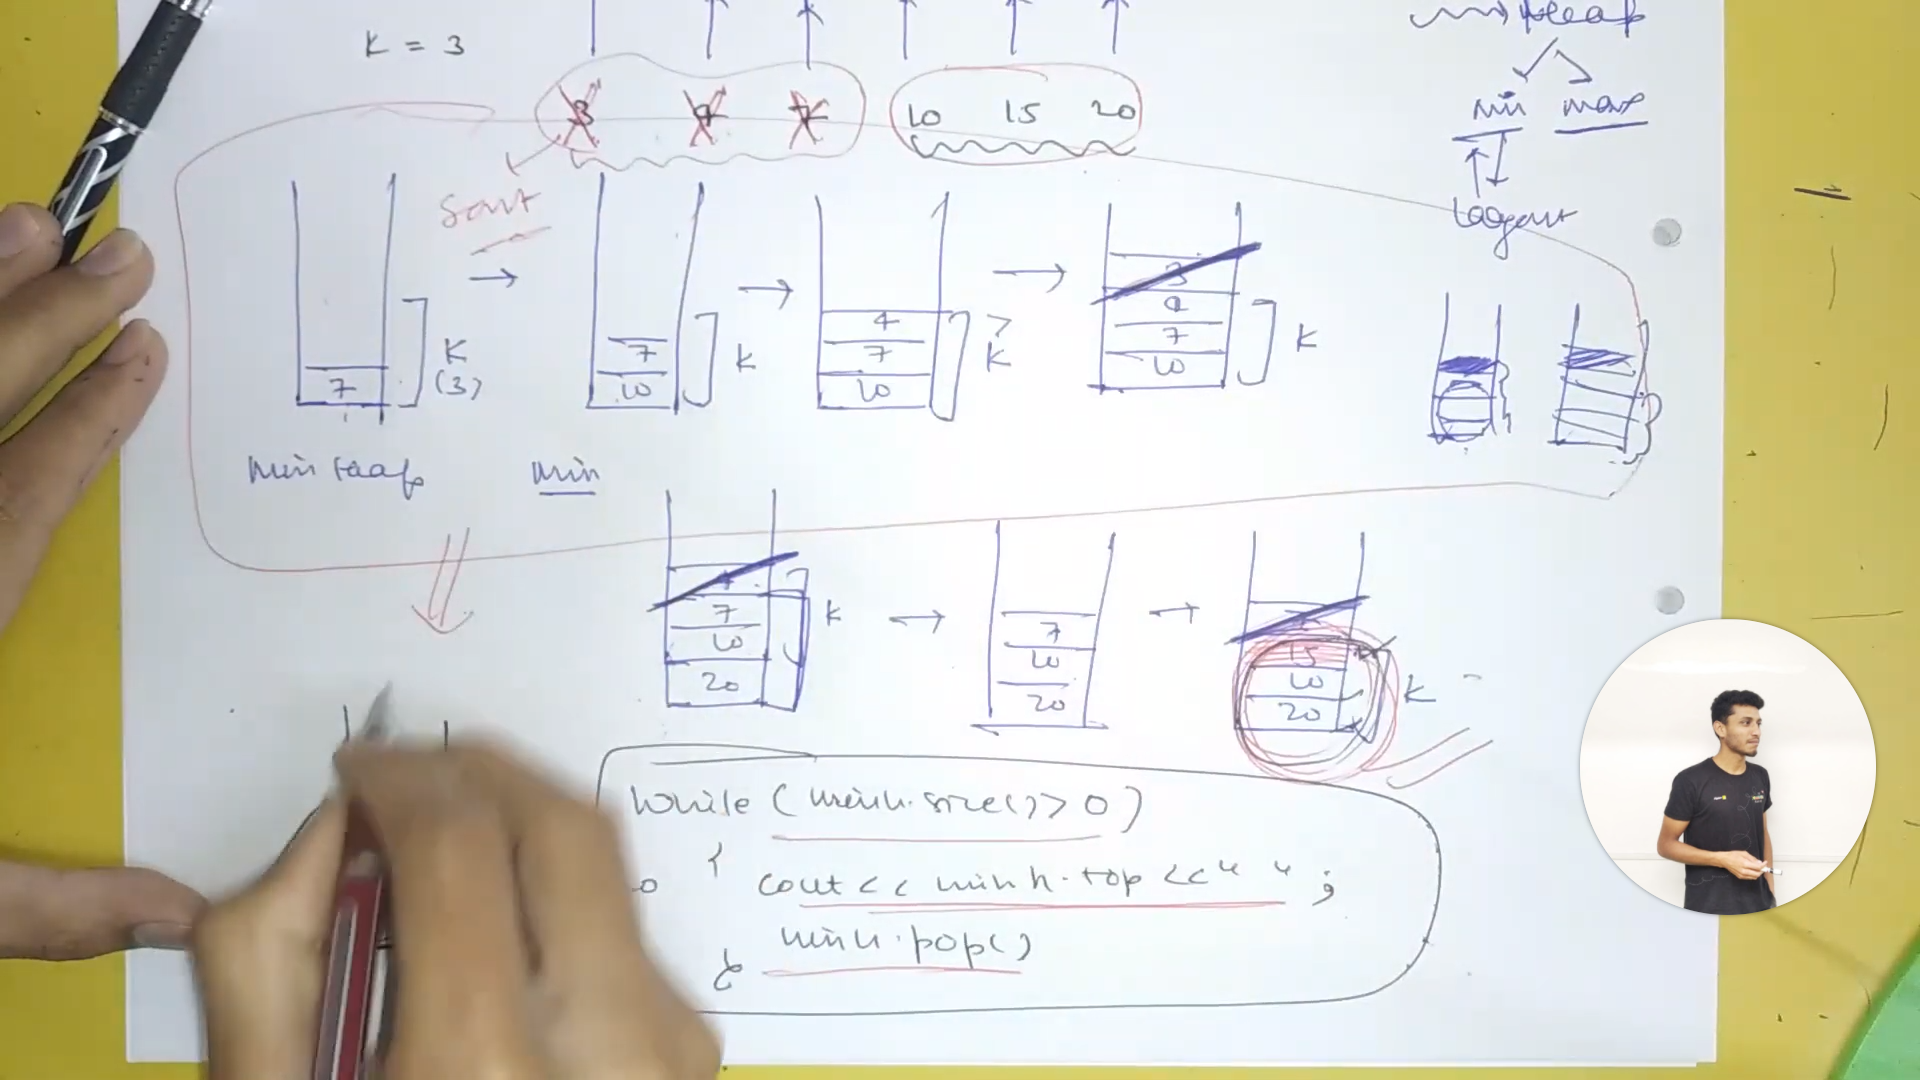 K = 3
3 4 7 10 15 20
min max
Sort
7
K
(3)
7
10
K
4
7
10
>
K
3
4
7
10
K
min heap
min
7
10
20
K
7
10
20
15
10
20
K
while (minh.size()>0)
{ cout << minh.top << " " ;
minh.pop()
}